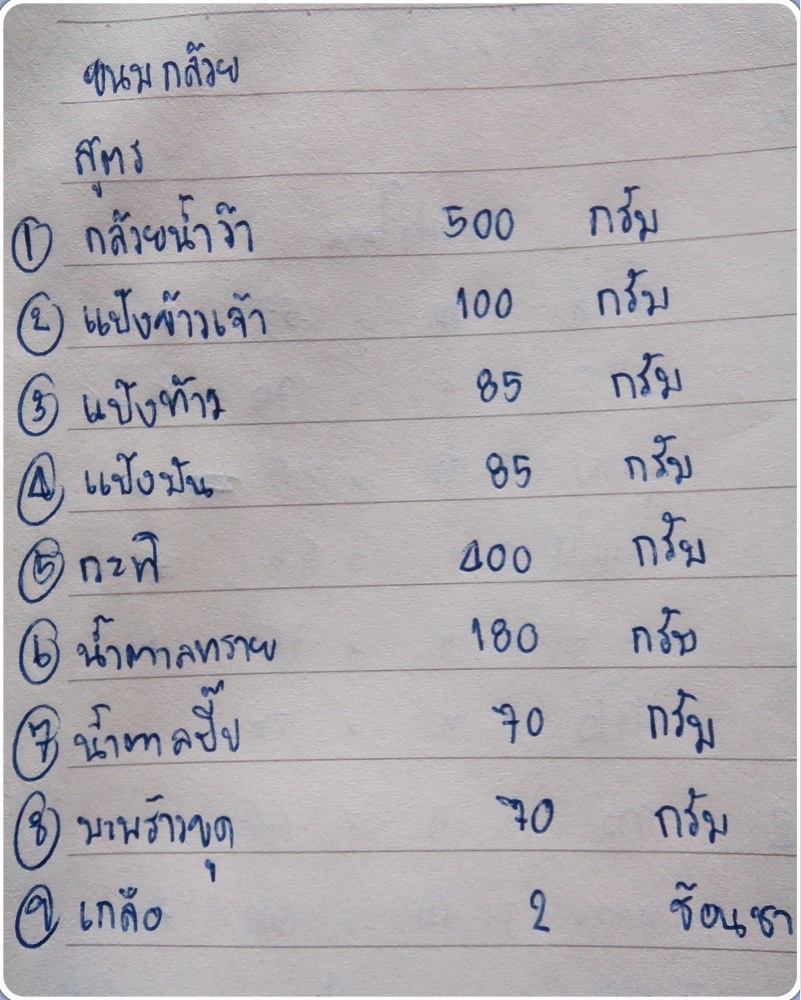 ขนมกล้วย
สูตร
① กล้วยน้ำว้า 500 กรัม
② แป้งข้าวเจ้า 100 กรัม
③ แป้งท้าว 85 กรัม
④ แป้งมัน 85 กรัม
⑤ กะทิ 400 กรัม
⑥ น้ำตาลทราย 180 กรัม
⑦ น้ำตาลปี๊บ 70 กรัม
⑧ มะพร้าวขูด 70 กรัม
⑨ เกลือ 2 ช้อนชา